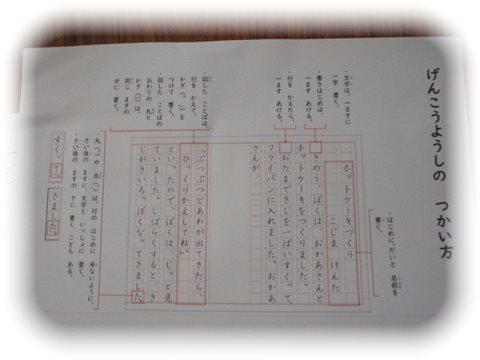 げんこうようしの つかい方
・はじめに、だいと 名前を
書く。
ホットケーキづくり
こじま けんた
きのう、ぼくは、おかあさんと
ホットケーキをつくりました。
おたまできじを一ぱいすくって
フライパンに入れました。おかあ
さんが、
「ぷつぷつとあわが出てきたら、
ひっくりかえしてね。」
といったので、ぼくは、じっと見
ていました。しばらくすると、き
じがきいろっぽくなってきました。
・文字は、一ますに
一字 書く。
・書きはじめは、
一ます あける。
・行を かえたら、
一ます あける。
・話した ことばは、
行を かえて、
かぎ(「」)を
つけて 書く。
・話した ことばの
おわりの 丸と
かぎ(。」)は、
同じ ますの
中に 書く。
・丸(。)や 点(、)は、行の はじめに 来ないように、
さい後の ますに、文字と いっしょに 書く。
・さい後の ますの 下に 書く ことも ある。
すくって、
きました。